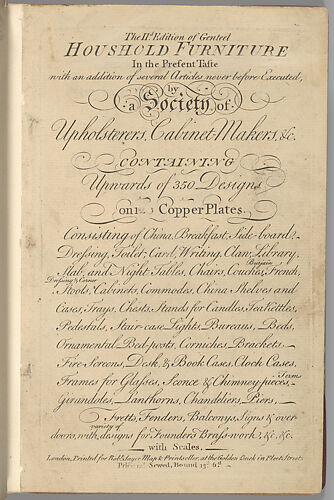 The II.d Edition of Genteel
HOUSHOLD FURNITURE
In the Present Taste
with an addition of several Articles never before Executed,
by
a Society of
Upholsterers, Cabinet-Makers, &c.
CONTAINING
Upwards of 350 Designs
on Copper Plates.
Consisting of China, Breakfast, Side-board,
Dressing, Toilet, Card, Writing, Claw, Library,
Slab, and Night Tables, Chairs, Couches, French,
Dressing & Corner
Stools, Cabinets, Commodes, China Shelves and
Cases, Trays, Chests, Stands for Candles, Tea Kettles,
Pedestals, Stair-case Lights, Bureaus, Beds,
Ornamental Bed-posts, Corniches, Brackets,
Fire-Screens, Desk, & Book Cases, Clock Cases,
Term
Frames for Glasses, Sconce & Chimney-pieces,
Girandoles, Lanthorns, Chandeliers, Piers,
Fretts, Fenders, Balconys, Signs & over-
variety of
doors, with, designs for Founders Brass-work, &c, &c.
with Scales.
London, Printed for Rob.t Sayer Map & Printseller, at the Golden Buck in Fleet Street.
Price 12.s Sewed, Bound 13.s 6.d